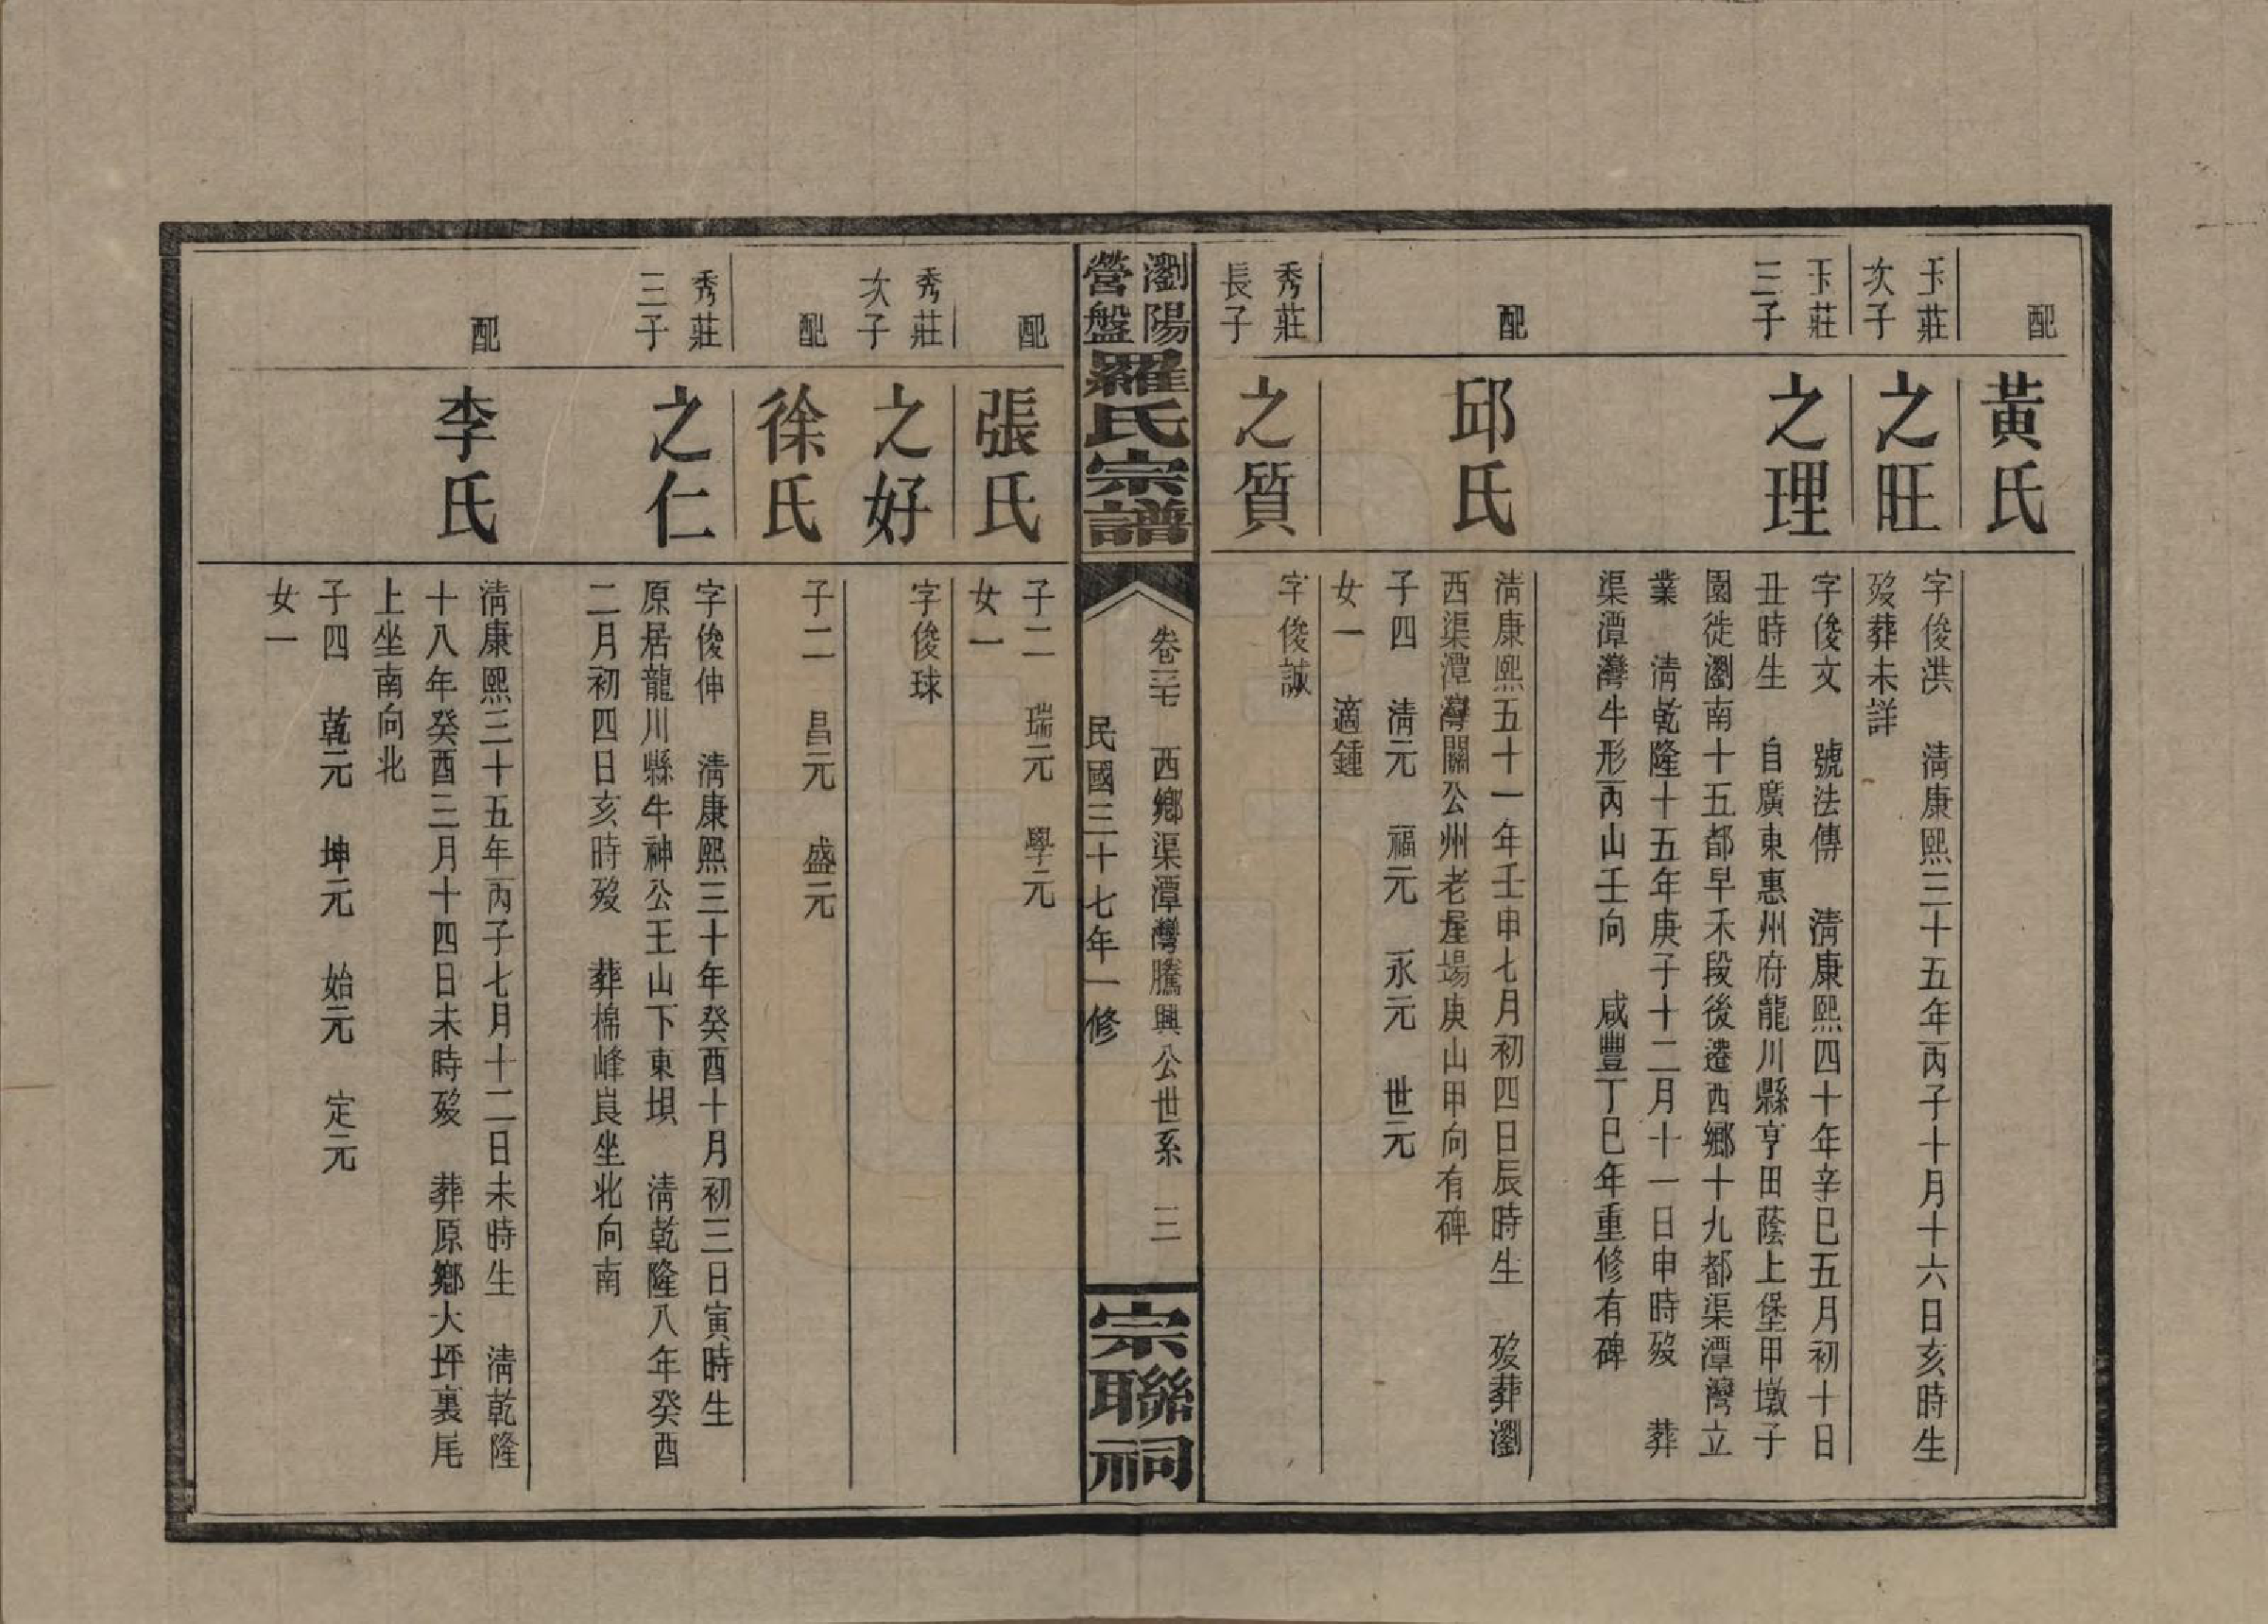 配
黃氏
玉莊
次子
之旺
字俊洪　清康熙三十五年丙子十月十六日亥時生
歿葬未詳
玉莊
三子
之理
字俊文　號法傳　清康熙四十年辛巳五月初十日
丑時生　自廣東惠州府龍川縣亨田蔭上堡甲墩子
園徙瀏南十五都早禾段後遷西鄉十九都渠潭灣立
業　清乾隆十五年庚子十二月十一日申時歿　葬
渠潭灣牛形丙山壬向　咸豐丁巳年重修有碑
配
邱氏
清康熙五十一年壬申七月初四日辰時生　歿葬瀏
西渠潭灣關公州老屋場庚山甲向有碑
子四　清元　福元　永元　世元
女一　適鍾
秀莊
長子
之質
字俊誠
瀏陽
營盤
羅氏宗譜
卷三七　西鄉渠潭灣騰興公世系　三
民國三十七年一修
宗聯祠
配
張氏
子二　瑞元　學元
女一
秀莊
次子
之好
字俊球
配
徐氏
子二　昌元　盛元
秀莊
三子
之仁
字俊伸　清康熙三十年癸酉十月初三日寅時生
原居龍川縣牛神公王山下東垻　清乾隆八年癸酉
二月初四日亥時歿　葬棉峰崀坐北向南
配
李氏
清康熙三十五年丙子七月十二日未時生　清乾隆
十八年癸酉三月十四日未時歿　葬原鄉大坪裏尾
上坐南向北
子四　乾元　坤元　始元　定元
女一